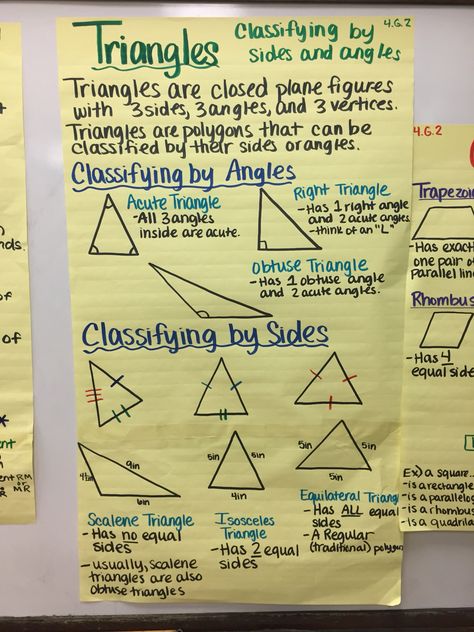 4.G.2
Triangles
Classifying by
sides and angles
Triangles are closed plane figures
with 3 sides, 3 angles, and 3 vertices.
Triangles are polygons that can be
classified by their sides or angles.
Classifying by Angles
Acute Triangle
- All 3 angles
inside are acute.
Right Triangle
- Has 1 right angle
and 2 acute angles
- think of an "L"
Obtuse Triangle
- Has 1 obtuse angle
and 2 acute angles.
Classifying by Sides
9in
6in
5in
5in
4in
5in
5in
5in
Scalene Triangle
- Has no equal
sides
- usually, scalene
triangles are also
obtuse triangles
Isosceles
Triangle
- Has 2 equal
sides
Equilateral Triang
- Has ALL equal
sides
- A Regular
(traditional) polygon
4.G.2
Trapezoid
- Has exact
one pair of
parallel line
Rhombus
- Has 4
equal side
Ex) a square...
- is a rectangle
- is a parallelog
- is a rhombus
- is a quadrila
of
of
RM
or
MR